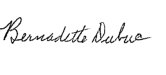 Bernadette Dubuc